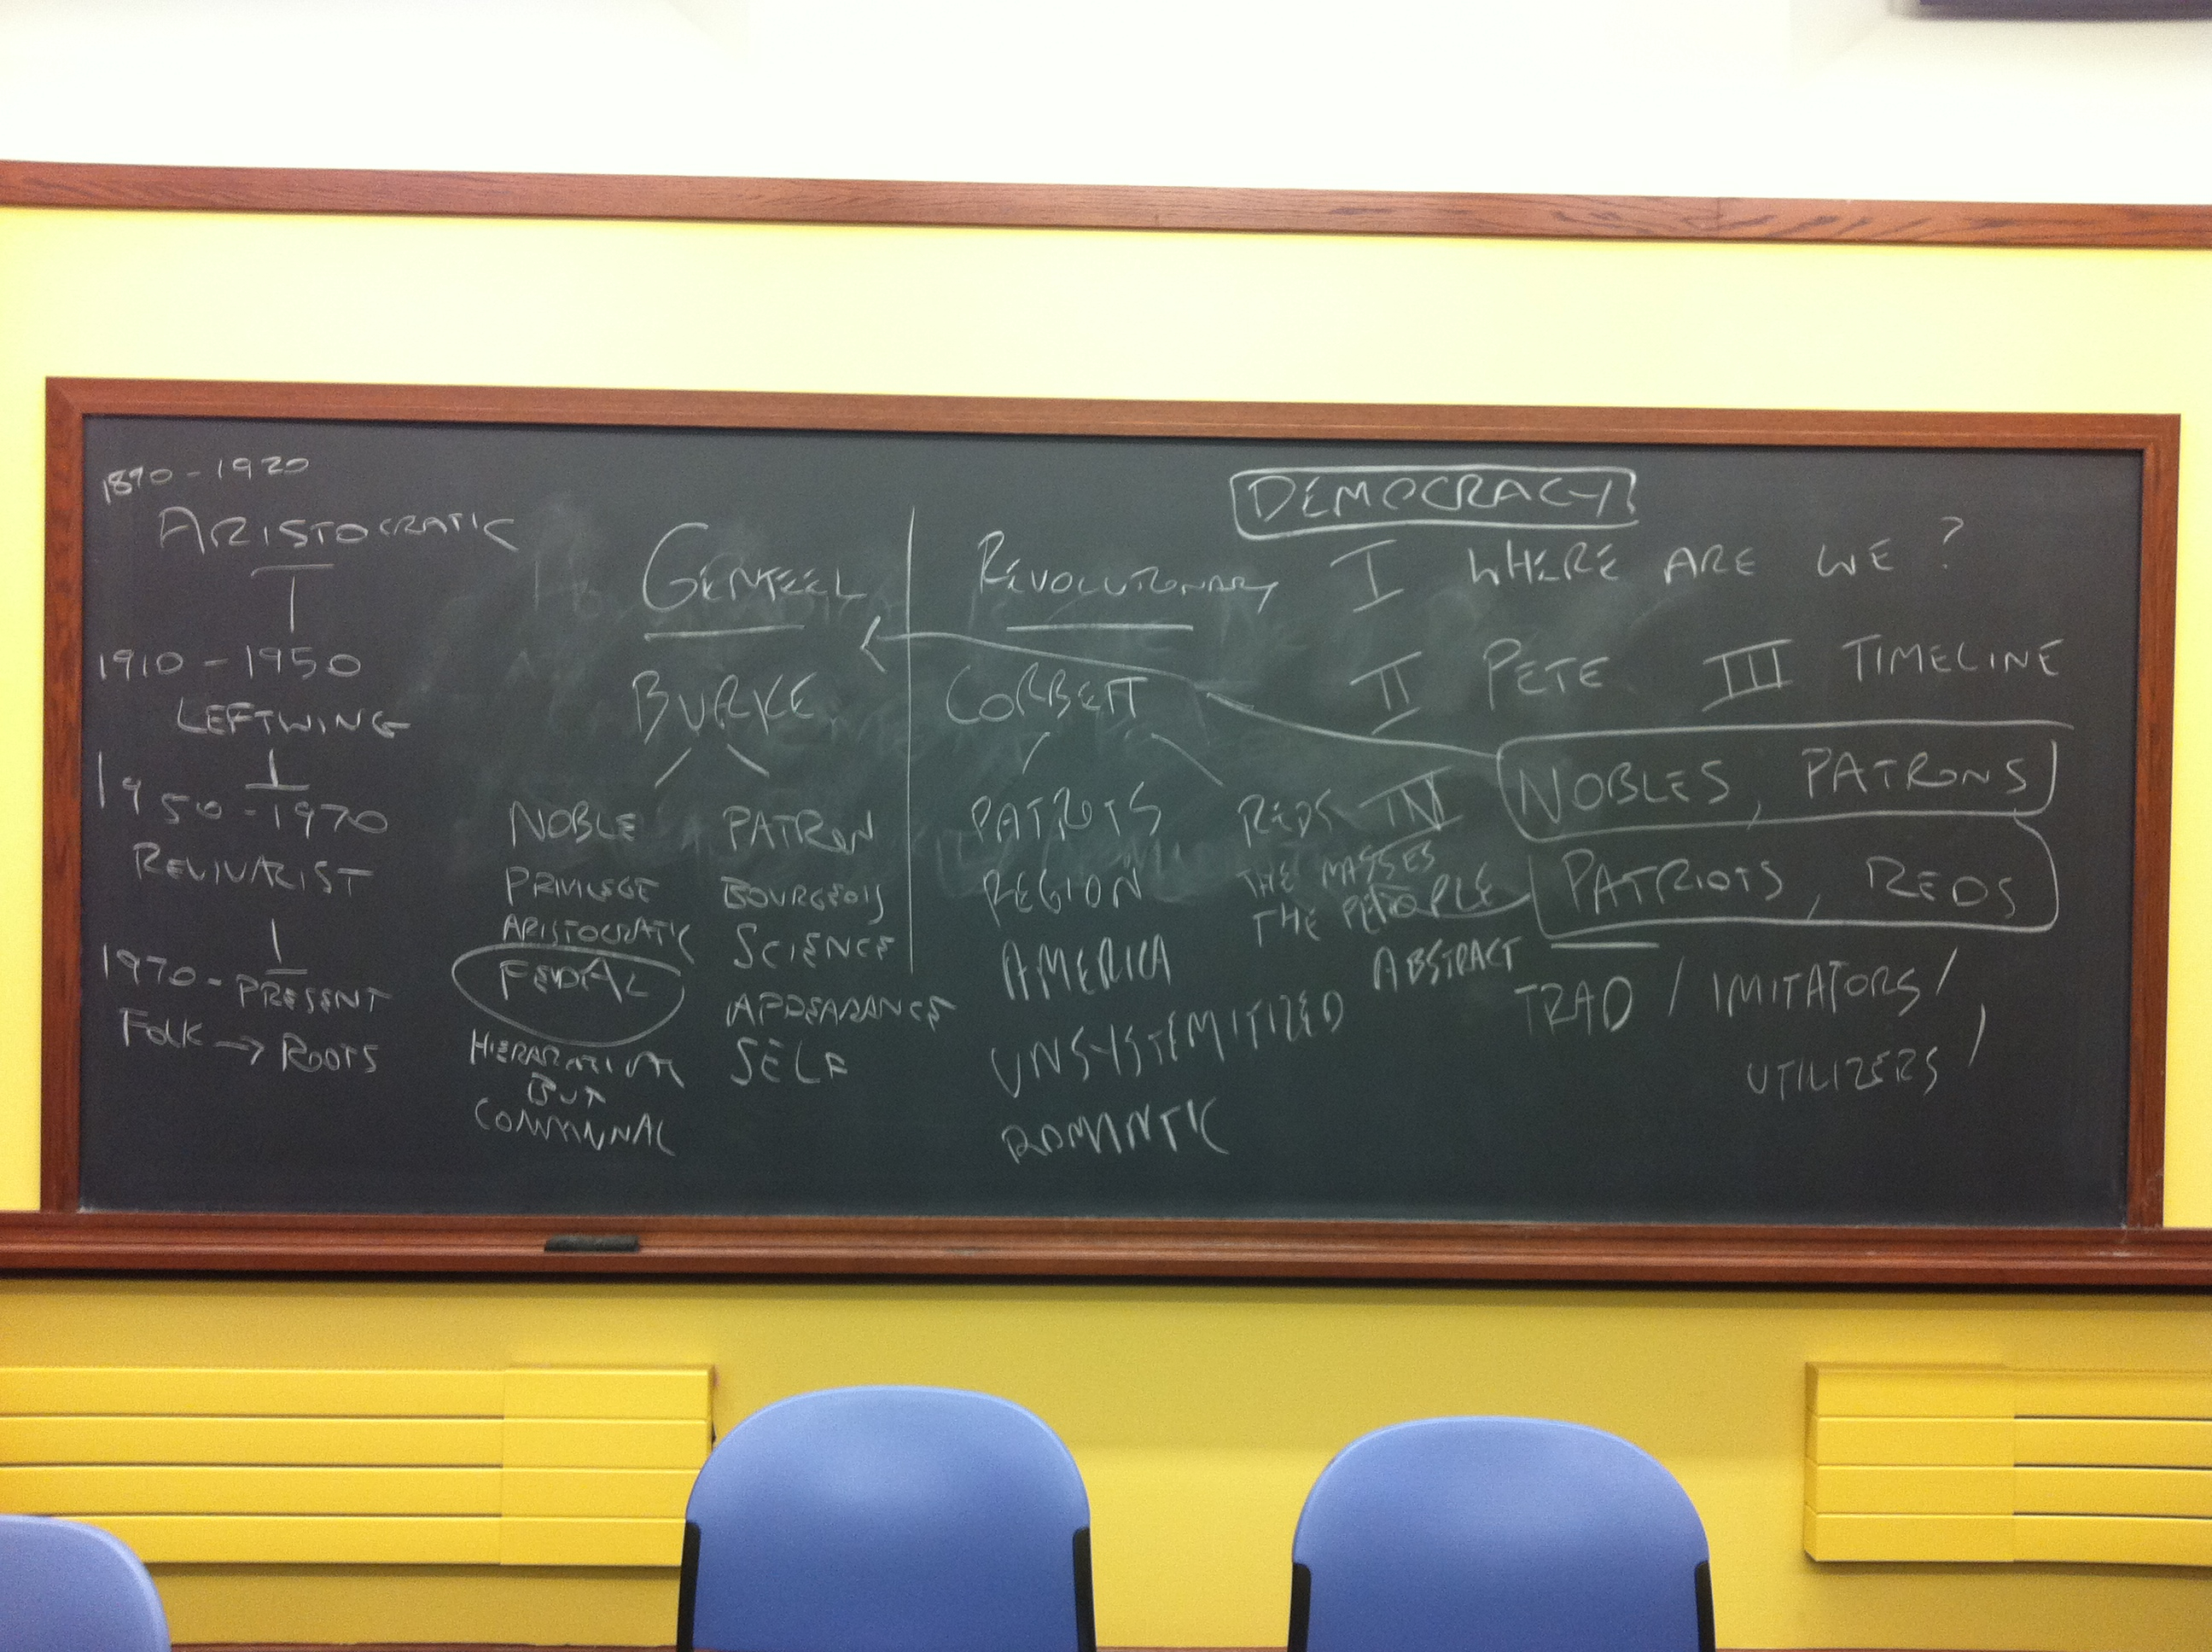 1890-1920
ARISTOCRATIC
1910-1950
LEFTWING
1950-1970
REVIVARIST
1970-PRESENT
FOLK → ROOTS
GENTEEL
BURKE
NOBLE
PRIVILEGE
ARISTOCRATIC
FEUDAL
HIERARCHICAL
BUT
COMMUNAL
PATRON
BOURGEOIS
SCIENCE
APPEARANCE
SELF
REVOLUTIONARY
CORBETT
PATRIOTS
REGION
AMERICA
UNSYSTEMITIZED
ROMANTIC
REDS
THE MASSES
THE PEOPLE
ABSTRACT
DEMOCRACY
I WHERE ARE WE?
II PETE III TIMELINE
IV NOBLES, PATRONS
PATRIOTS, REDS
TRAD / IMITATORS /
UTILIZERS /